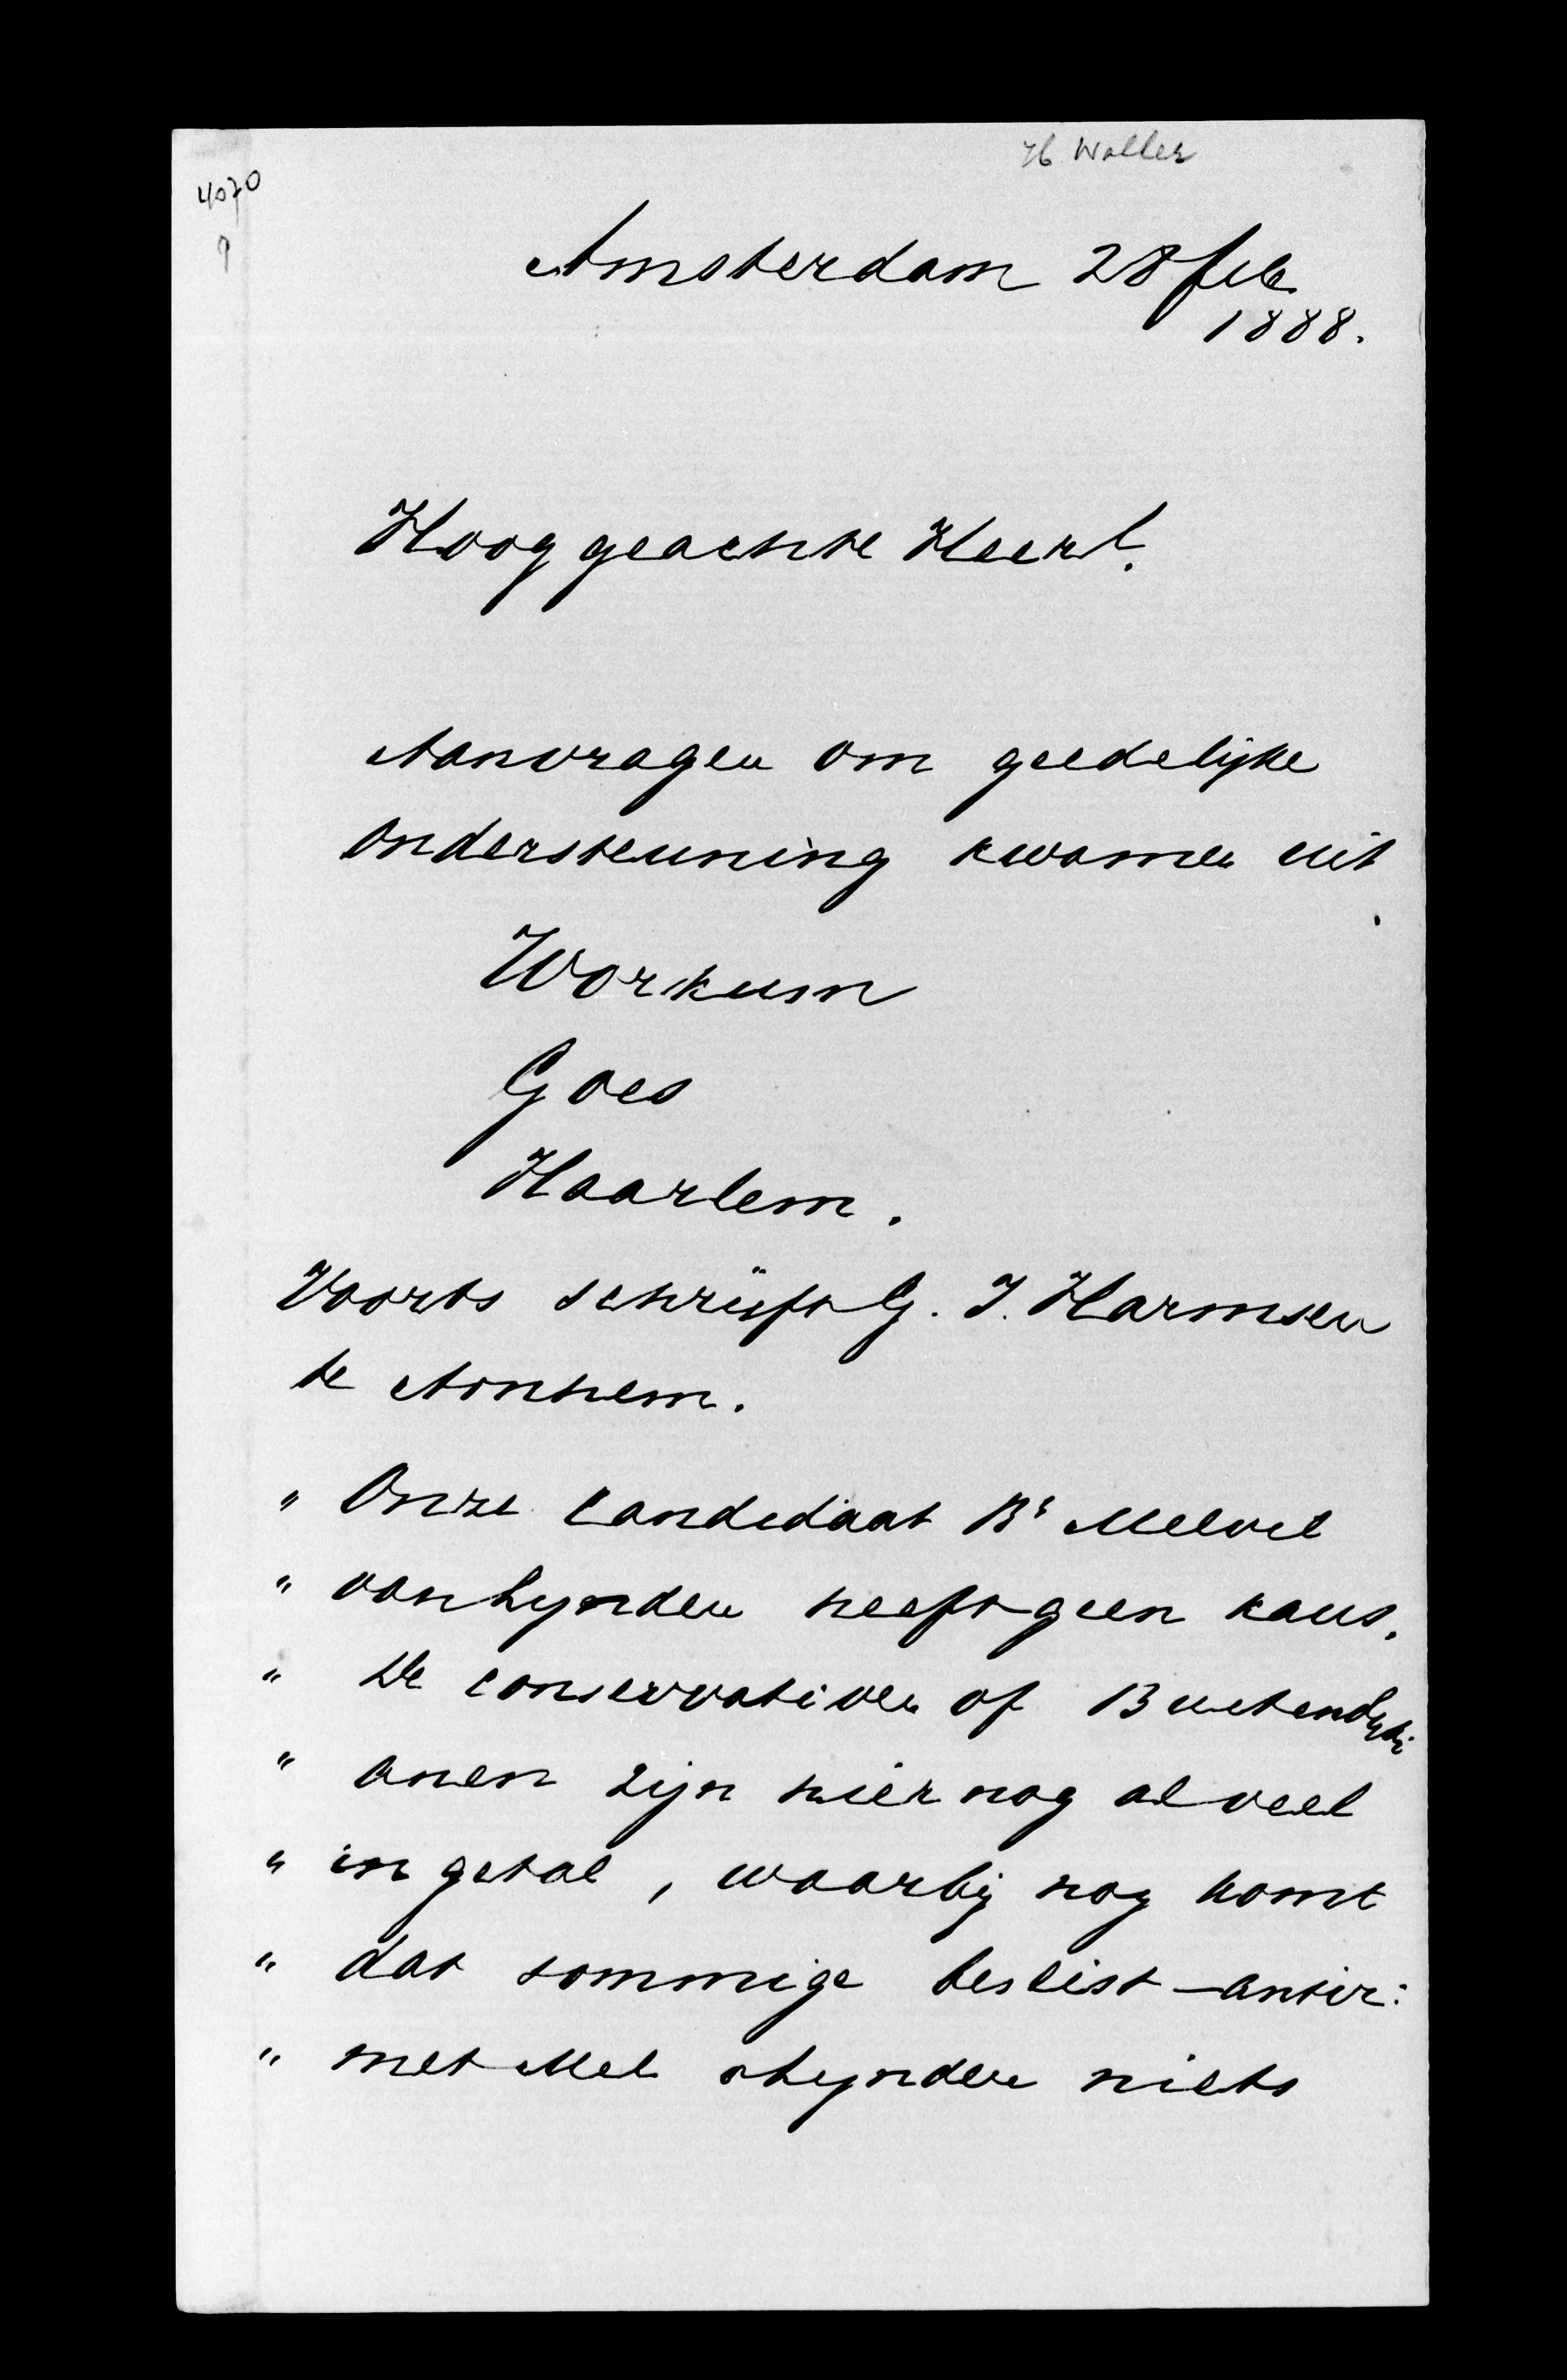 H Waller
4070
Amsterdam 28 feb
1888.
Hooggeachte Heer!
Aanvragen om geldelijke
ondersteuning kwamen uit
Workum
Goes
Haarlem.
Voorts schrijft G. J. Harmsen
te Arnhem.
" Onze Candidaat Bn Melvil
" van Lynden heeft geen kans.
" De conservativen of Buitendijki
" anen zijn hier nog al veel
" in getal, waarbij nog komt
" dat sommige beslist antir:
" met Mel v Lynden niets